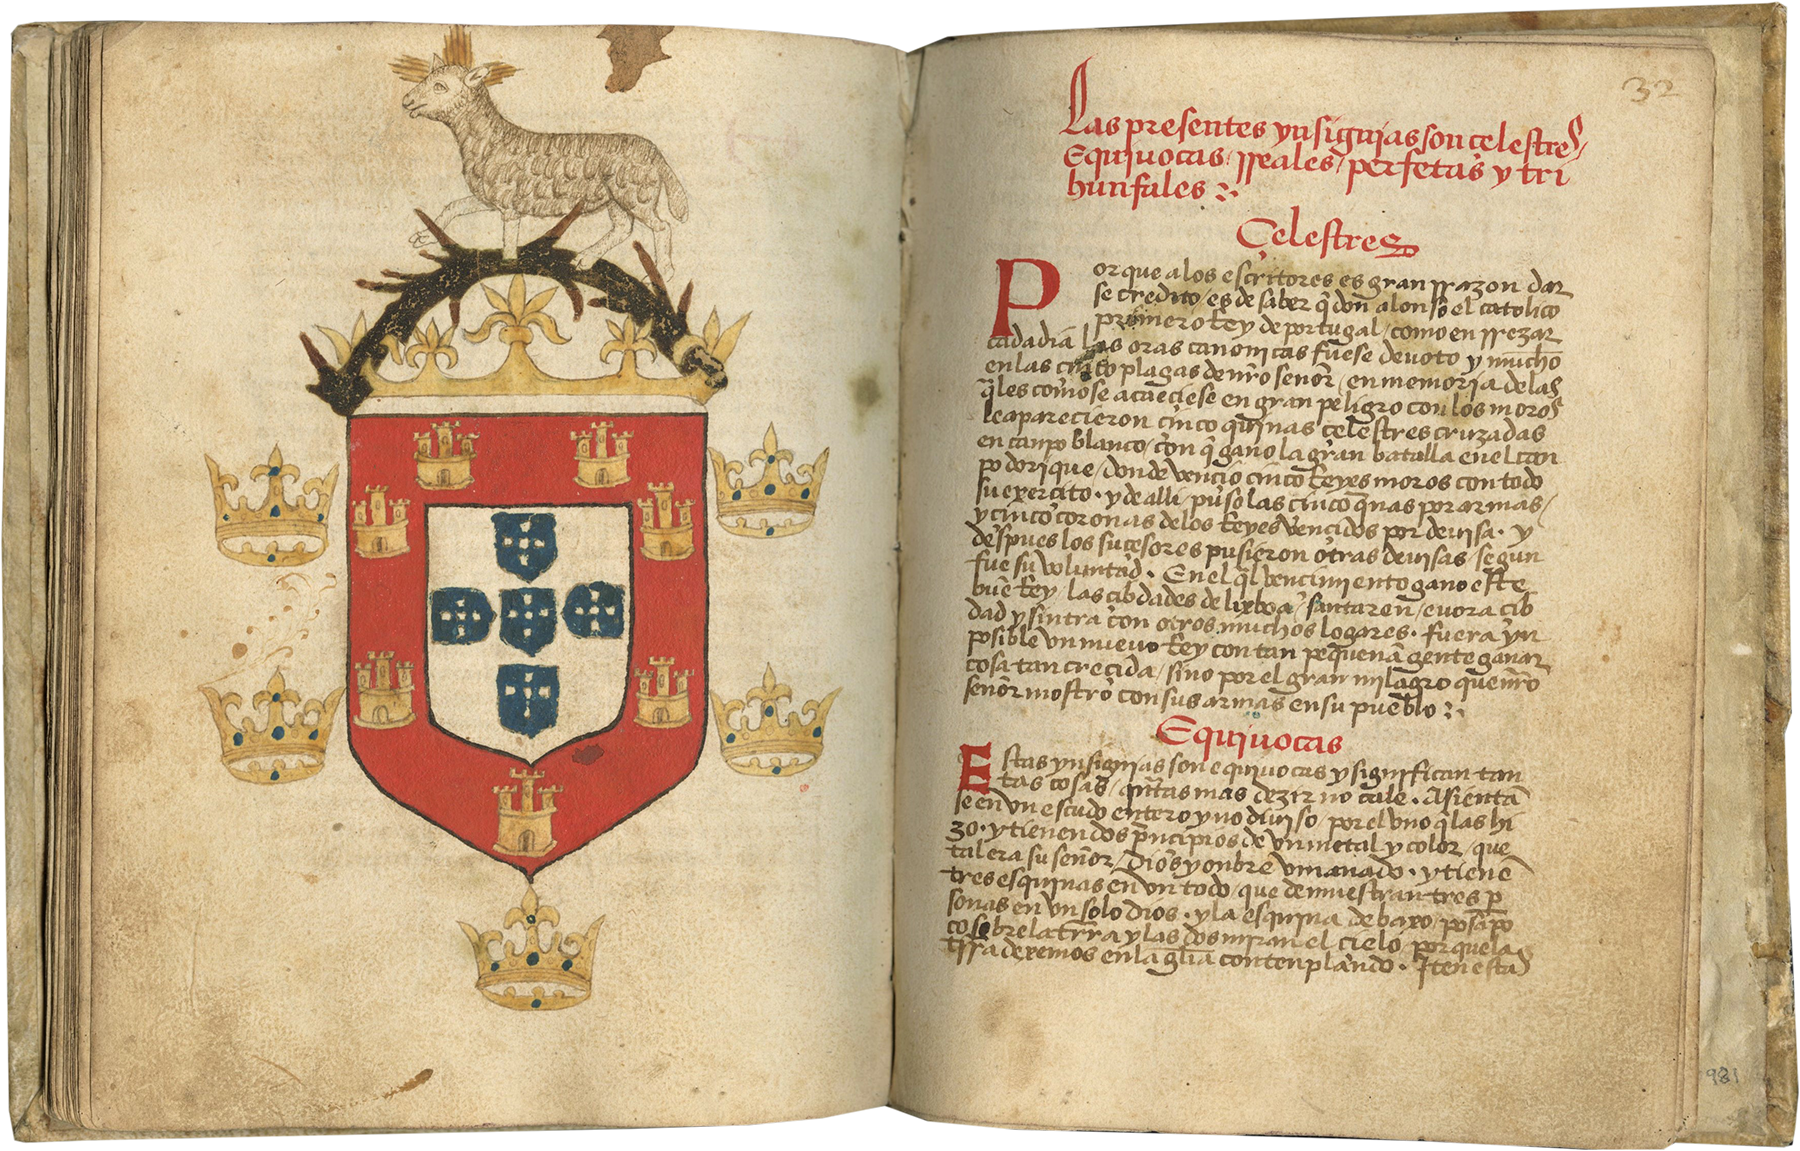 32
Las presentes ynsignjas son celestres /
Equjuocas / rreales / perfetas y tri
hunfales :~
Çelestres
Por que a los escritores es gran rrazon dar
se credito / es de saber q̃ don alonso el catolico
primero Rey de portugal / como en rrezar
cada dia las oras canonicas fuese deuoto y mucho
en las cinco plagas de nr̃o señor / en memoria de las
q̃les como se acaeciese en gran peligro con los moros
le aparecieron cinco quinas celestres cruzadas
en canpo blanco / con q̃ gano la gran batalla en el can
po dorique / donde vencio cinco Reyes moros con todo
su exercito · y de alli / puso las cinco q̃nas por armas /
y cinco coronas de los Reyes vencidos por deuisa · y
despues los sucesores pusieron otras deuisas / segun
fue su voluntad · En el q̃l vencimiento gano este
buẽ Rey las cibdades de lixboa / santaren / euora cib
dad y sintra con otros muchos logares · fuera yn
posible vn nueuo Rey con tan pequena gente ganar
cosa tan crecida / sino por el gran milagro que nr̃o
señor mostro con sus armas en su pueblo :~
Equjuocas
Estas ynsignias son equiuocas y significan tan
tas cosas / q̃ntas mas dezir no cale · Asientã
se en vn escudo entero y no diuiso / por el vno q̃ las hi
zo · y tienen dos prĩcipios de vn metal y color / que
tal era su señor / dios y onbre vmanado · y tienẽ
tres esquinas en vn todo / que demuestran tres p̱
sonas en vn solo dios · y la esquina de baxo / posa po
co sobre la trr̃a y las dos miran el cielo / por que la
trr̃a dexemos en la gl̃ia contenplando · Iten estas
981